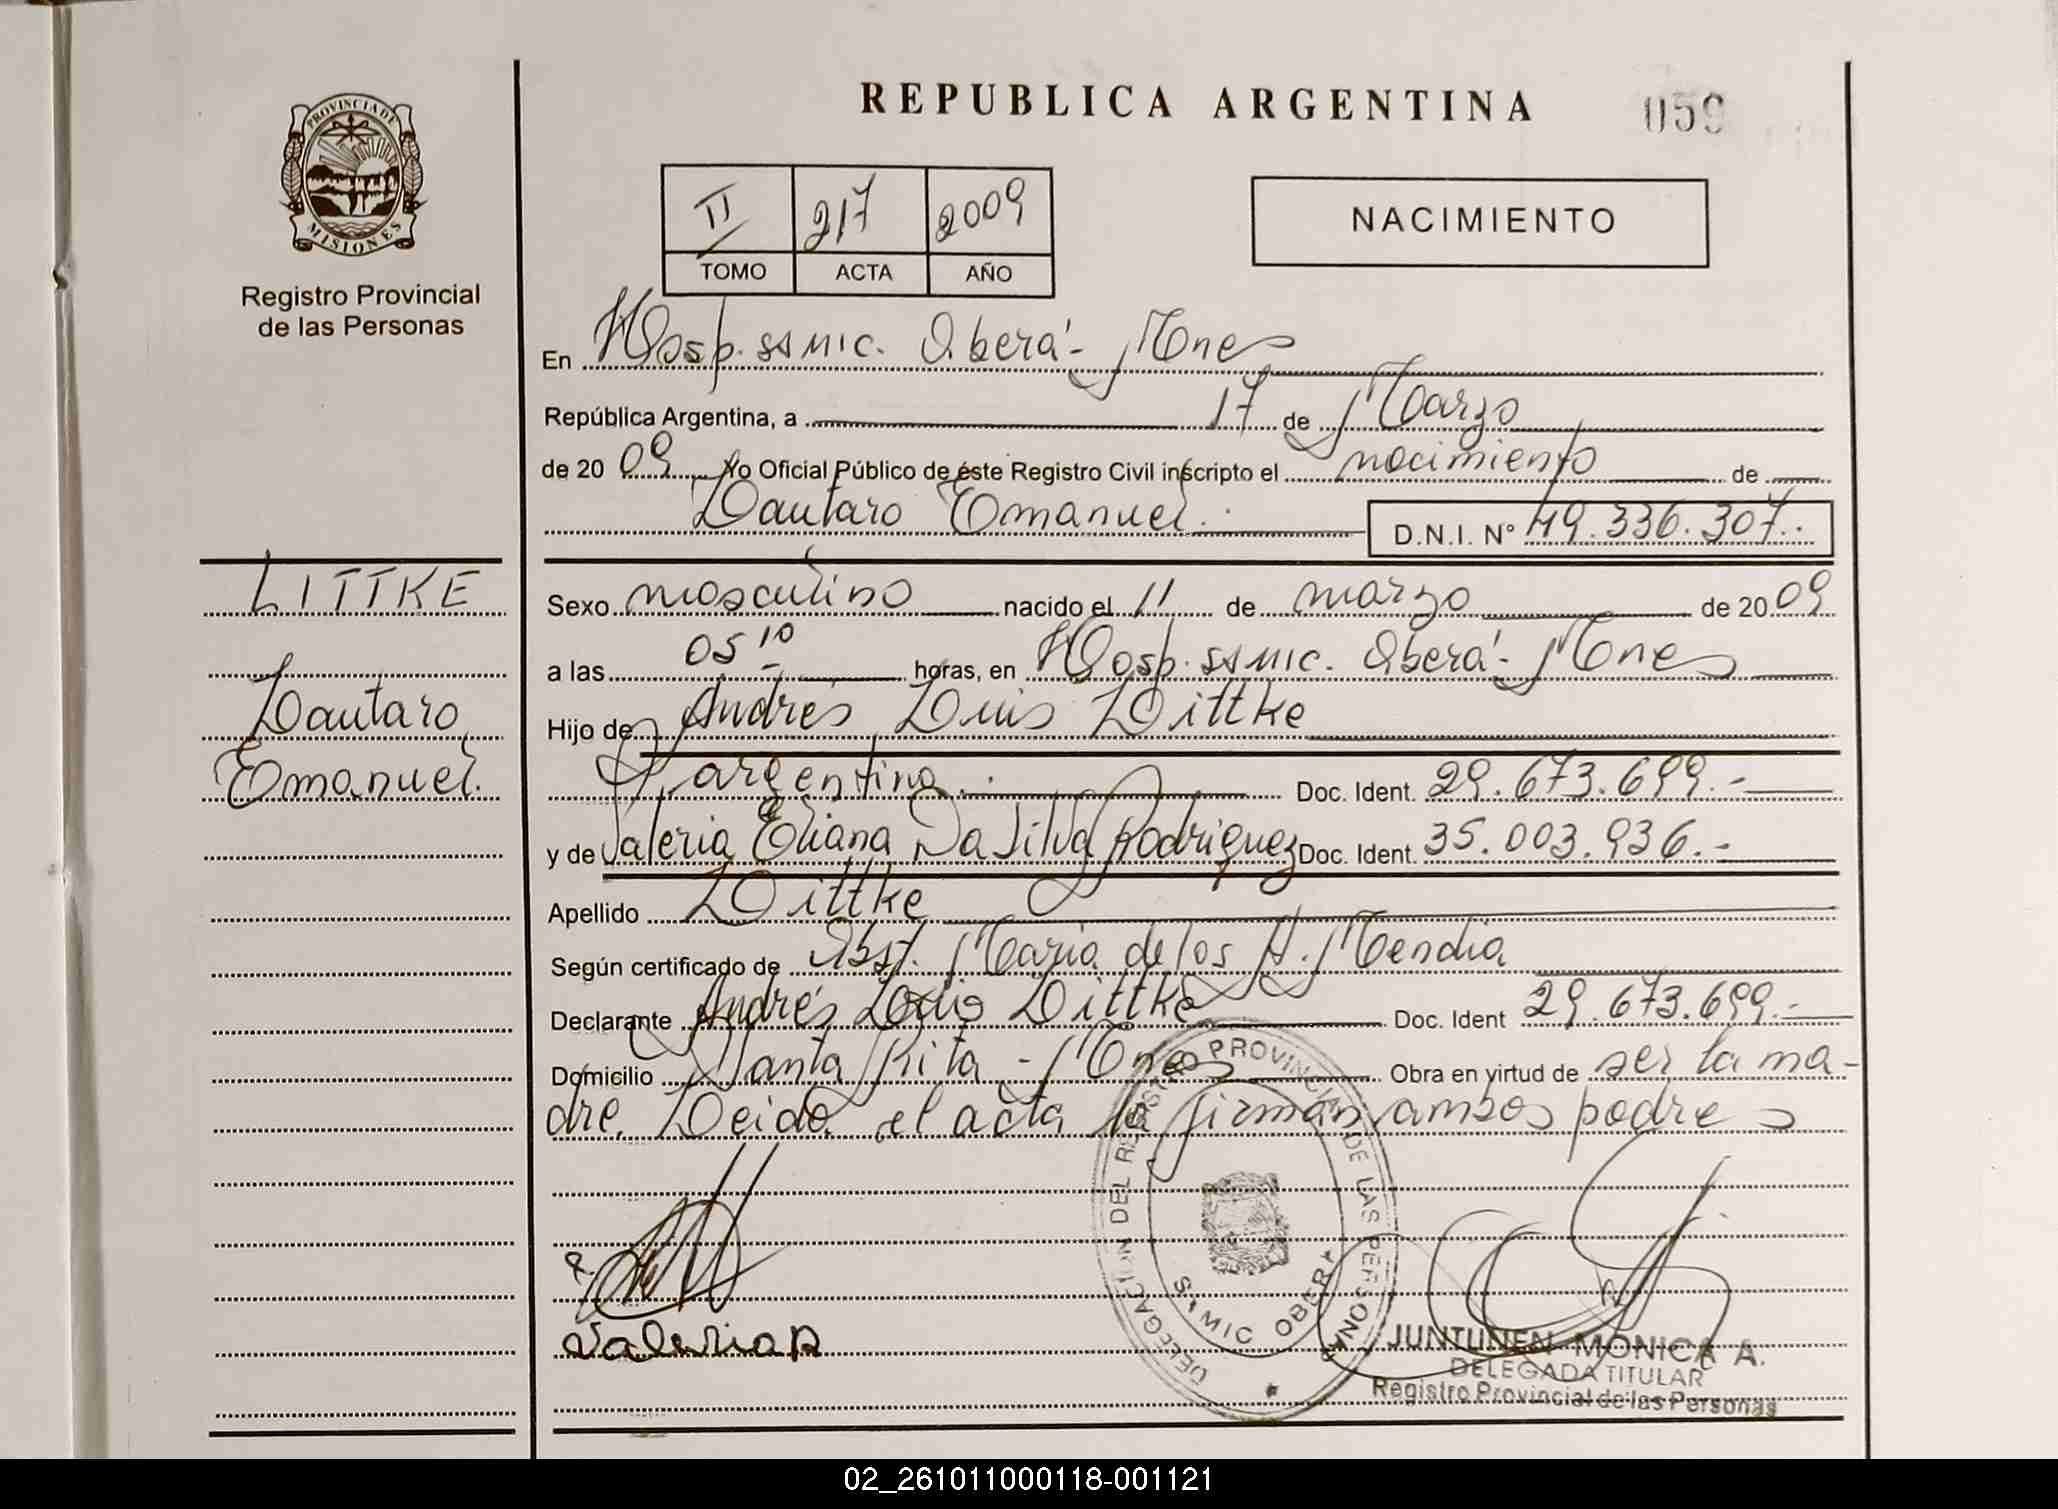 REPUBLICA ARGENTINA
059
PROVINCIA DE
MISIONES
Registro Provincial
de las Personas
II 217 2009
TOMO ACTA AÑO
NACIMIENTO
En Hosp. SAMIC. Oberá - Mnes
República Argentina, a 17 de Marzo
de 20 09 Yo Oficial Público de éste Registro Civil inscripto el nacimiento de
Lautaro Emanuel. D.N.I. Nº 49.336.307.
LITTKE
Lautaro
Emanuel.
Sexo masculino nacido el 11 de marzo de 20 09
a las 05 10 horas, en Hosp. SAMIC. Oberá - Mnes
Hijo de Andrés Luis Littke
argentino. Doc. Ident. 29.673.699.-
y de Valeria Eliana Da Silva Rodriguez Doc. Ident. 35.003.936.-
Apellido Littke
Según certificado de Obst. Maria de los A. Mendia
Declarante Andrés Luis Littke Doc. Ident 29.673.699.-
Domicilio Santa Rita - Mnes Obra en virtud de ser la ma-
dre. Leida el acta la firman ambos padres
Valeria
DELEGACION DEL REGISTRO PROVINCIAL DE LAS PERSONAS
SAMIC OBERA
JUNTUNEN MONICA A.
DELEGADA TITULAR
Registro Provincial de las Personas
02_261011000118-001121